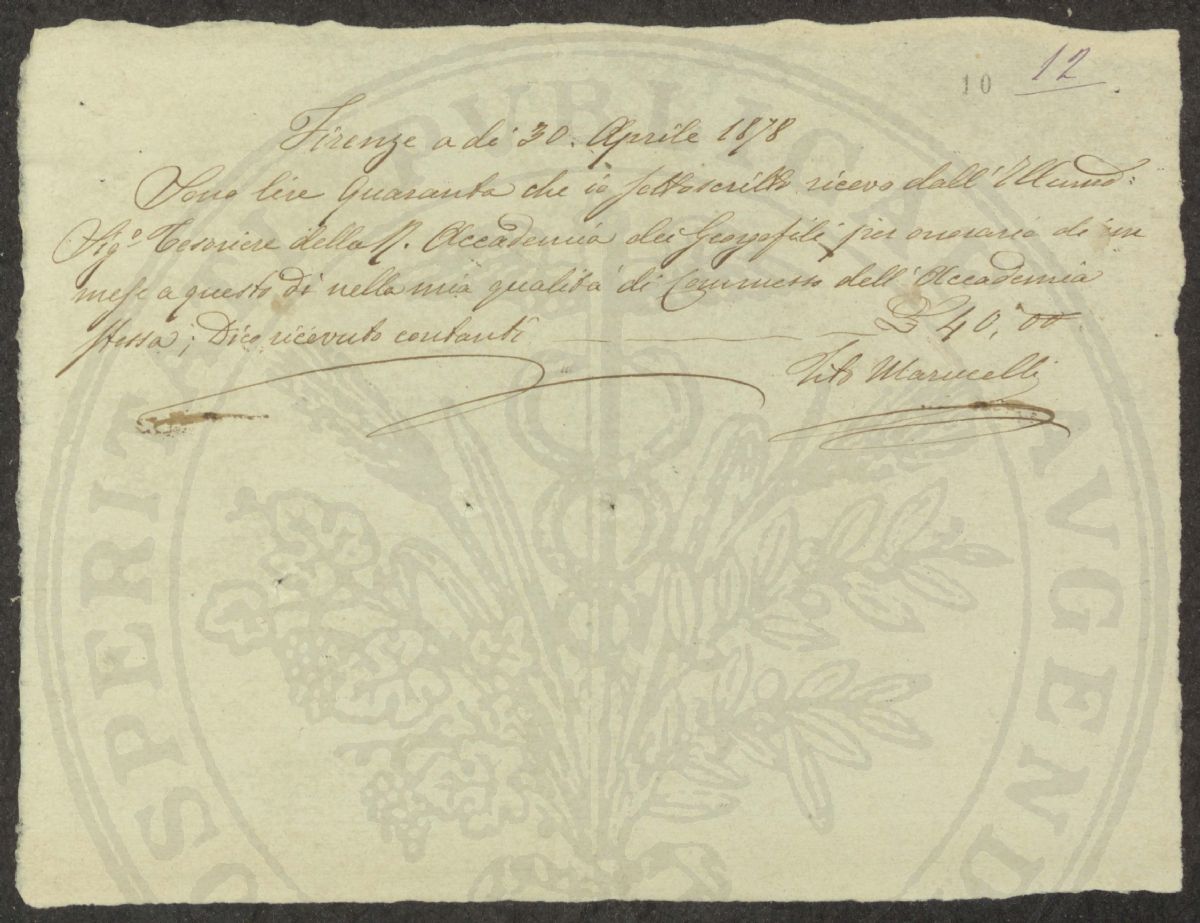 10 12
Firenze a dì 30. Aprile 1878
Sono lire Quaranta che io sottoscritto ricevo dall'
Sig.º Tesoriere della R. Accademia dei Georgofili per onorario di un
mese a questo dì nella mia qualità di Commesso dell'Accademia
stessa; Dico ricevuto contanti £ 40,00
Tito Marucelli
PROSPERITATI PVBLICAE AVGENDAE